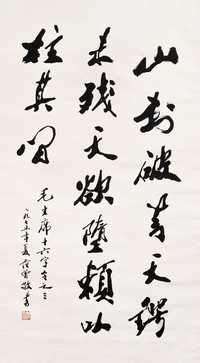 山刺破青天鍔
未残天欲墮賴以
柱其间
毛主席十六字令之三
一九七五年夏范曾敬书